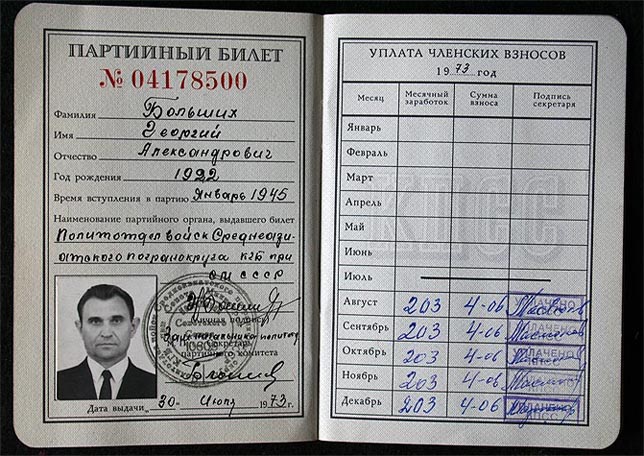 ПАРТИЙНЫЙ БИЛЕТ
№ 04178500
Фамилия Больших
Имя Георгий
Отчество Александрович
Год рождения 1922
Время вступления в партию Январь 1945
Наименование партийного органа, выдавшего билет
Политотдел войск Среднеази-
атского погранокруга КГБ при
СМ СССР
Личная подпись
Секретарь
партийного комитета
Дата выдачи 30 Июля 1973 г.
УПЛАТА ЧЛЕНСКИХ ВЗНОСОВ
1973 год
Месяц Месячный заработок Сумма взноса Подпись секретаря
Январь
Февраль
Март
Апрель
Май
Июнь
Июль
Август 203 4-06 УПЛАЧЕНО
Сентябрь 203 4-06 УПЛАЧЕНО
Октябрь 203 4-06 УПЛАЧЕНО КПСС
Ноябрь 203 4-06 УПЛАЧЕНО КПСС
Декабрь 203 4-06 КПСС
КПСС